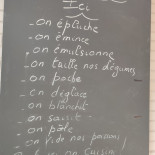 Ici
_on épluche
_on émince
_on émulsionne
_on taille nos légumes
_on poche
_on déglace
_on blanchit
_on saisit
_on pâte
_on vide nos poissons
on cuisine